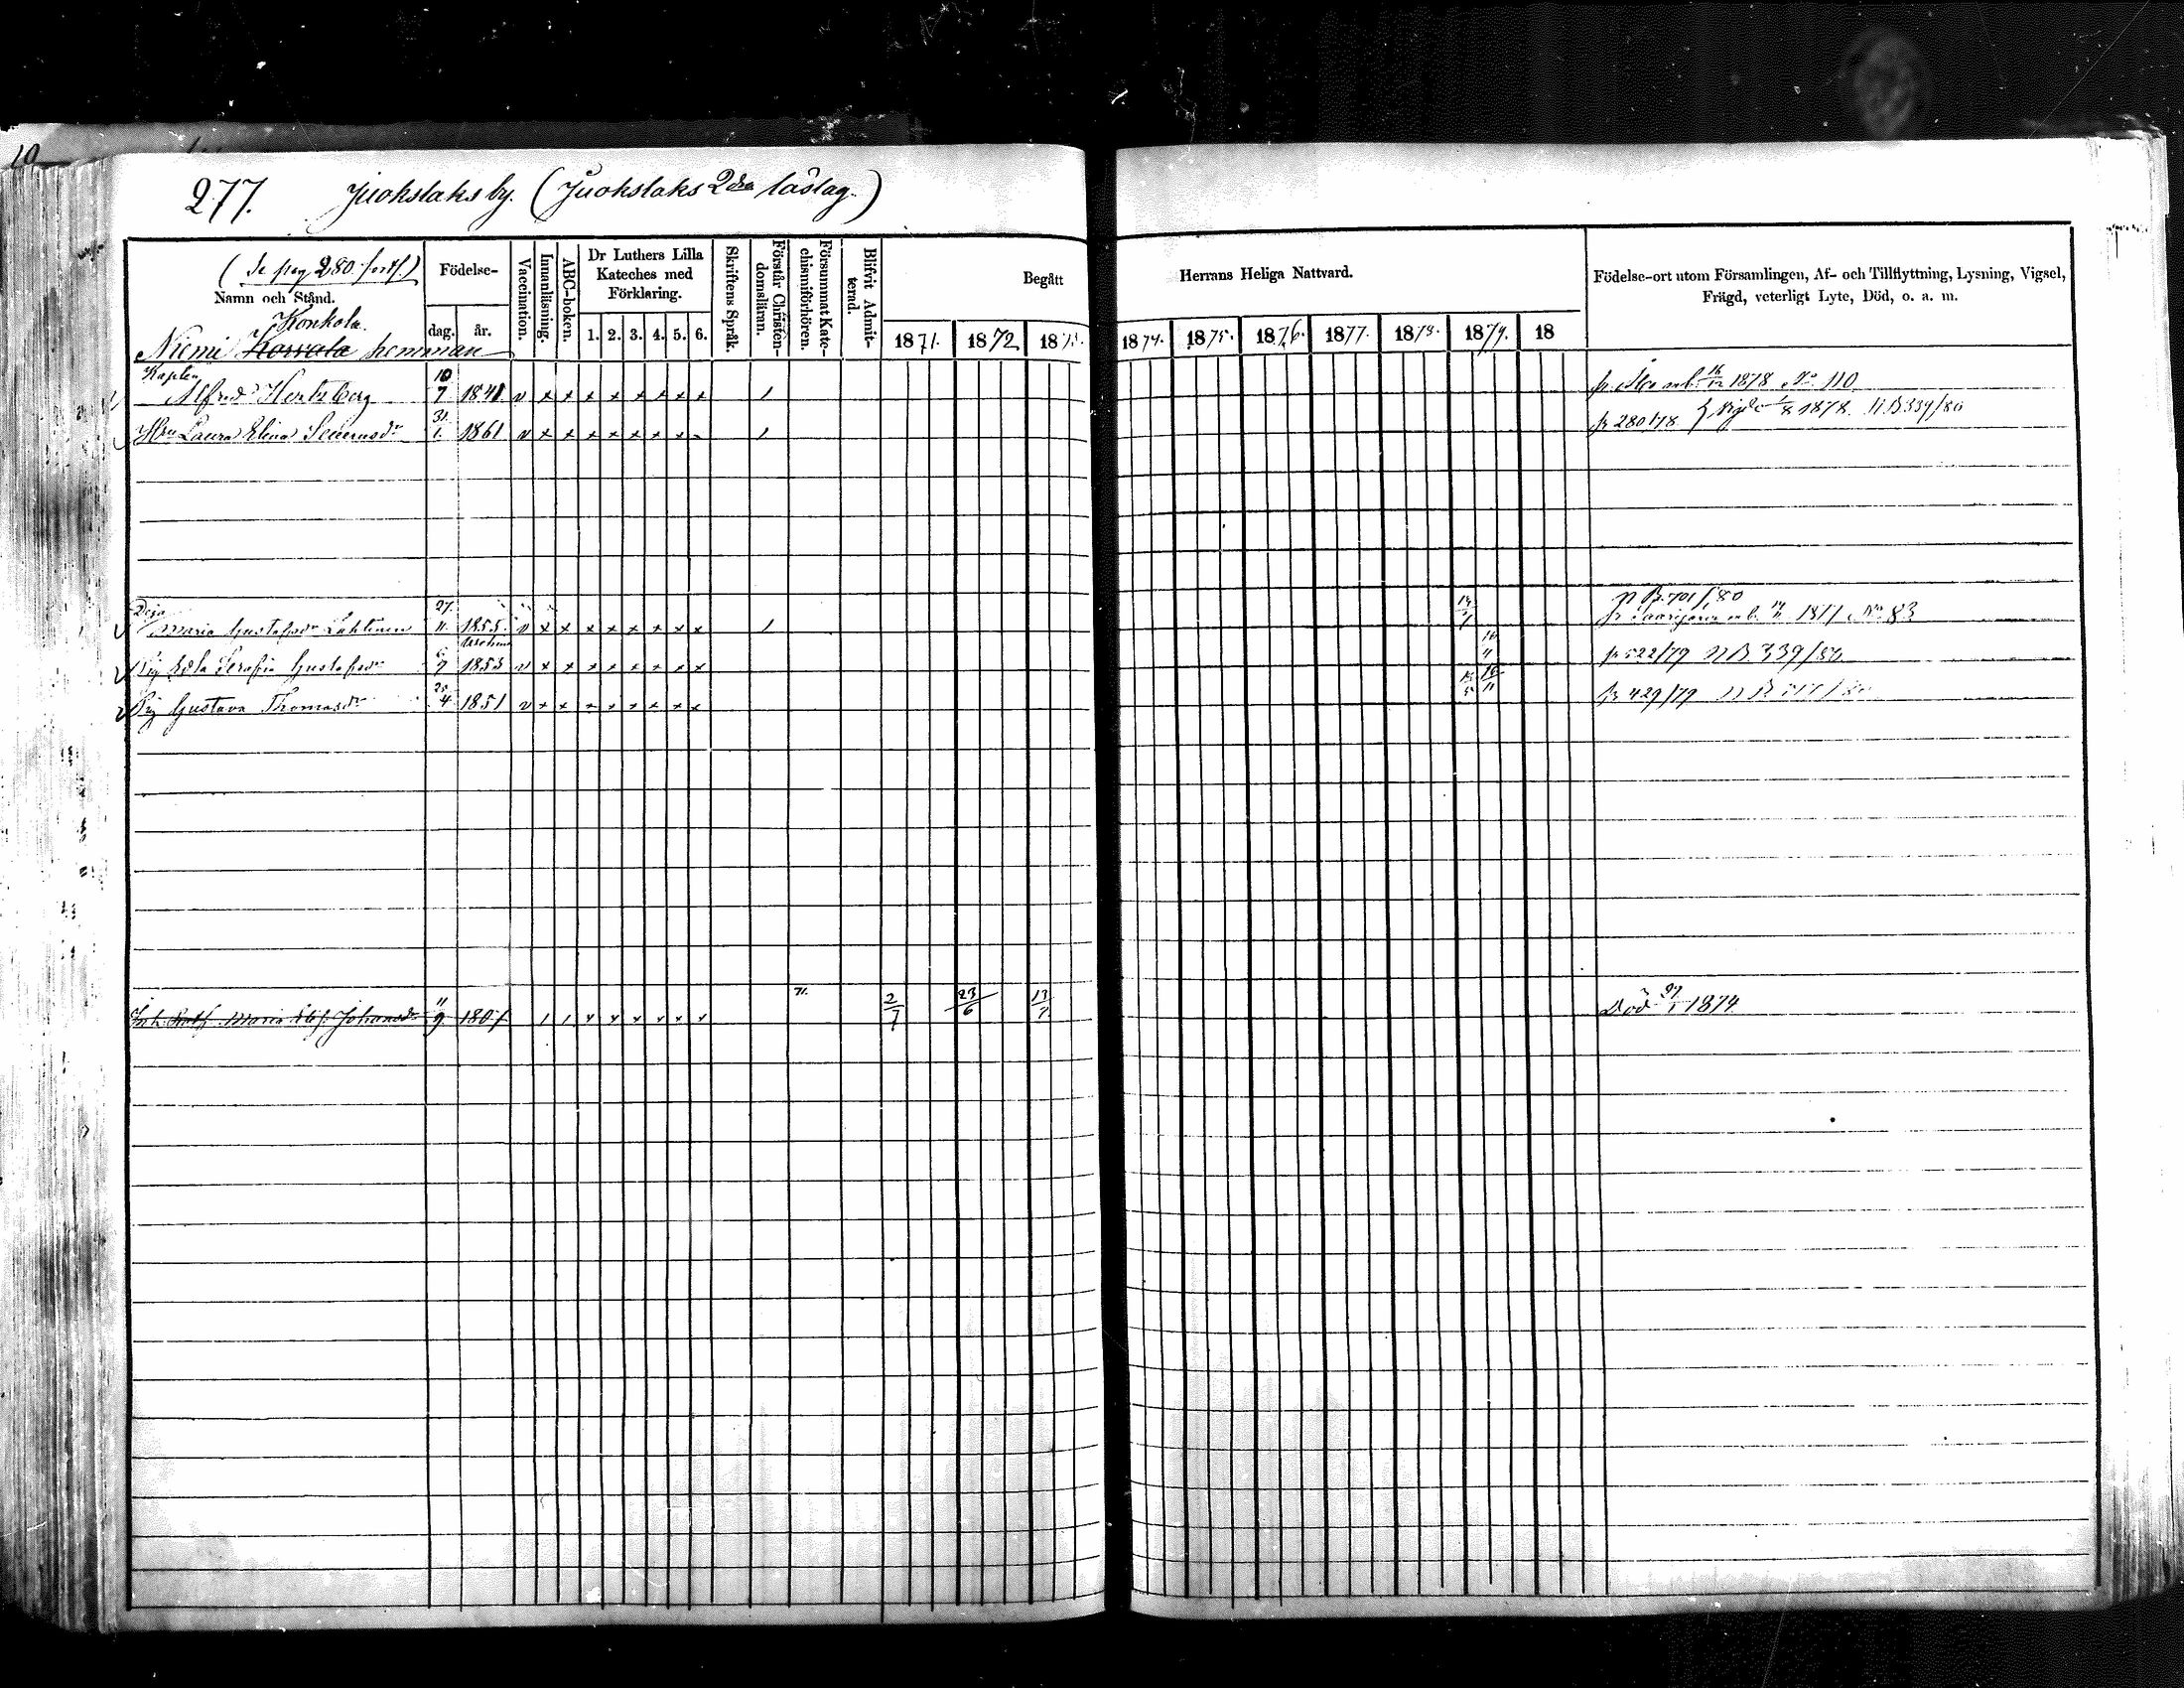 10
277. Juokslaks by. (Juokslaks 2dra läslag.)
(Se pag 280. forts.)
Namn och Stånd.
Födelse-
dag. år.
Vaccination.
Innanläsning.
ABC-boken.
Dr Luthers Lilla Kateches med Förklaring.
1. 2. 3. 4. 5. 6.
Skriftens Språk.
Förstår Christendomsläran.
Försummat Katechismiförhören.
Blifvit Admitterad.
Begått Herrans Heliga Nattvard.
1871. 1872 1873. 1874. 1875. 1876. 1877. 1878. 1879. 18
Födelse-ort utom Församlingen, Af- och Tillflyttning, Lysning, Vigsel,
Frägd, veterligt Lyte, Död, o. a. m.
Konkola.
Niemi Korvala hemman
Kaplan
Alfred Hertzberg 10/7 1841 v x x x x x x x x / 16/12 1878 No 110
Hru Laura Elina 31/1 1861 v x x x x x x x / fr 280/78 1/8 1878. NB 339/80
NB. 701/80
Deja
Maria Gustafsdr Lahtinen 27/11 1855 v x x x x x x x x / 1877 No 83
Pig Edla Serafia Gustafsdr 6/9 1853 v x x x x x x x x 16/11 fr 522/79 NB 339/80
Pig Gustava Thomasdr 25/4 1851 v x x x x x x x x 16/11 fr 429/79 NB
Maria Johansdr 11/9 1807 / / x x x x x x 71. 2/7 23/6 13/7 Död 27/1 1874.